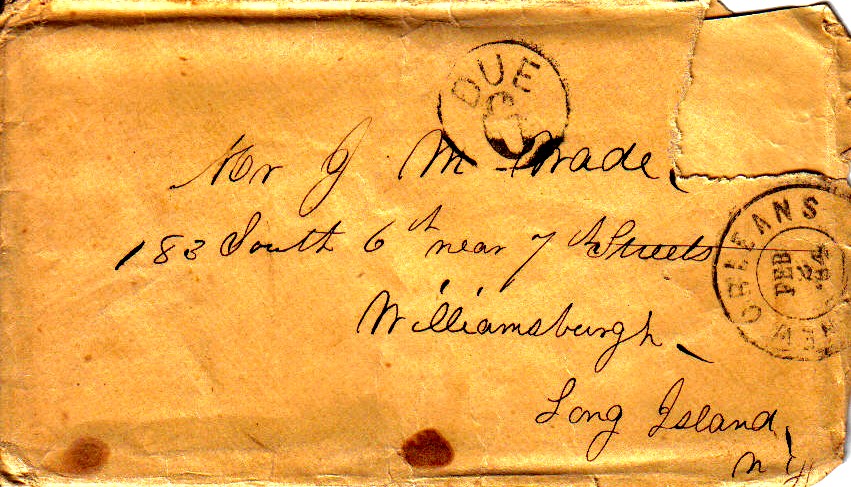 DUE 6
Mr J M Wade
183 South 6th near 7th Streets
Williamsburgh
Long Island,
N Y
NEW ORLEANS
FEB 24